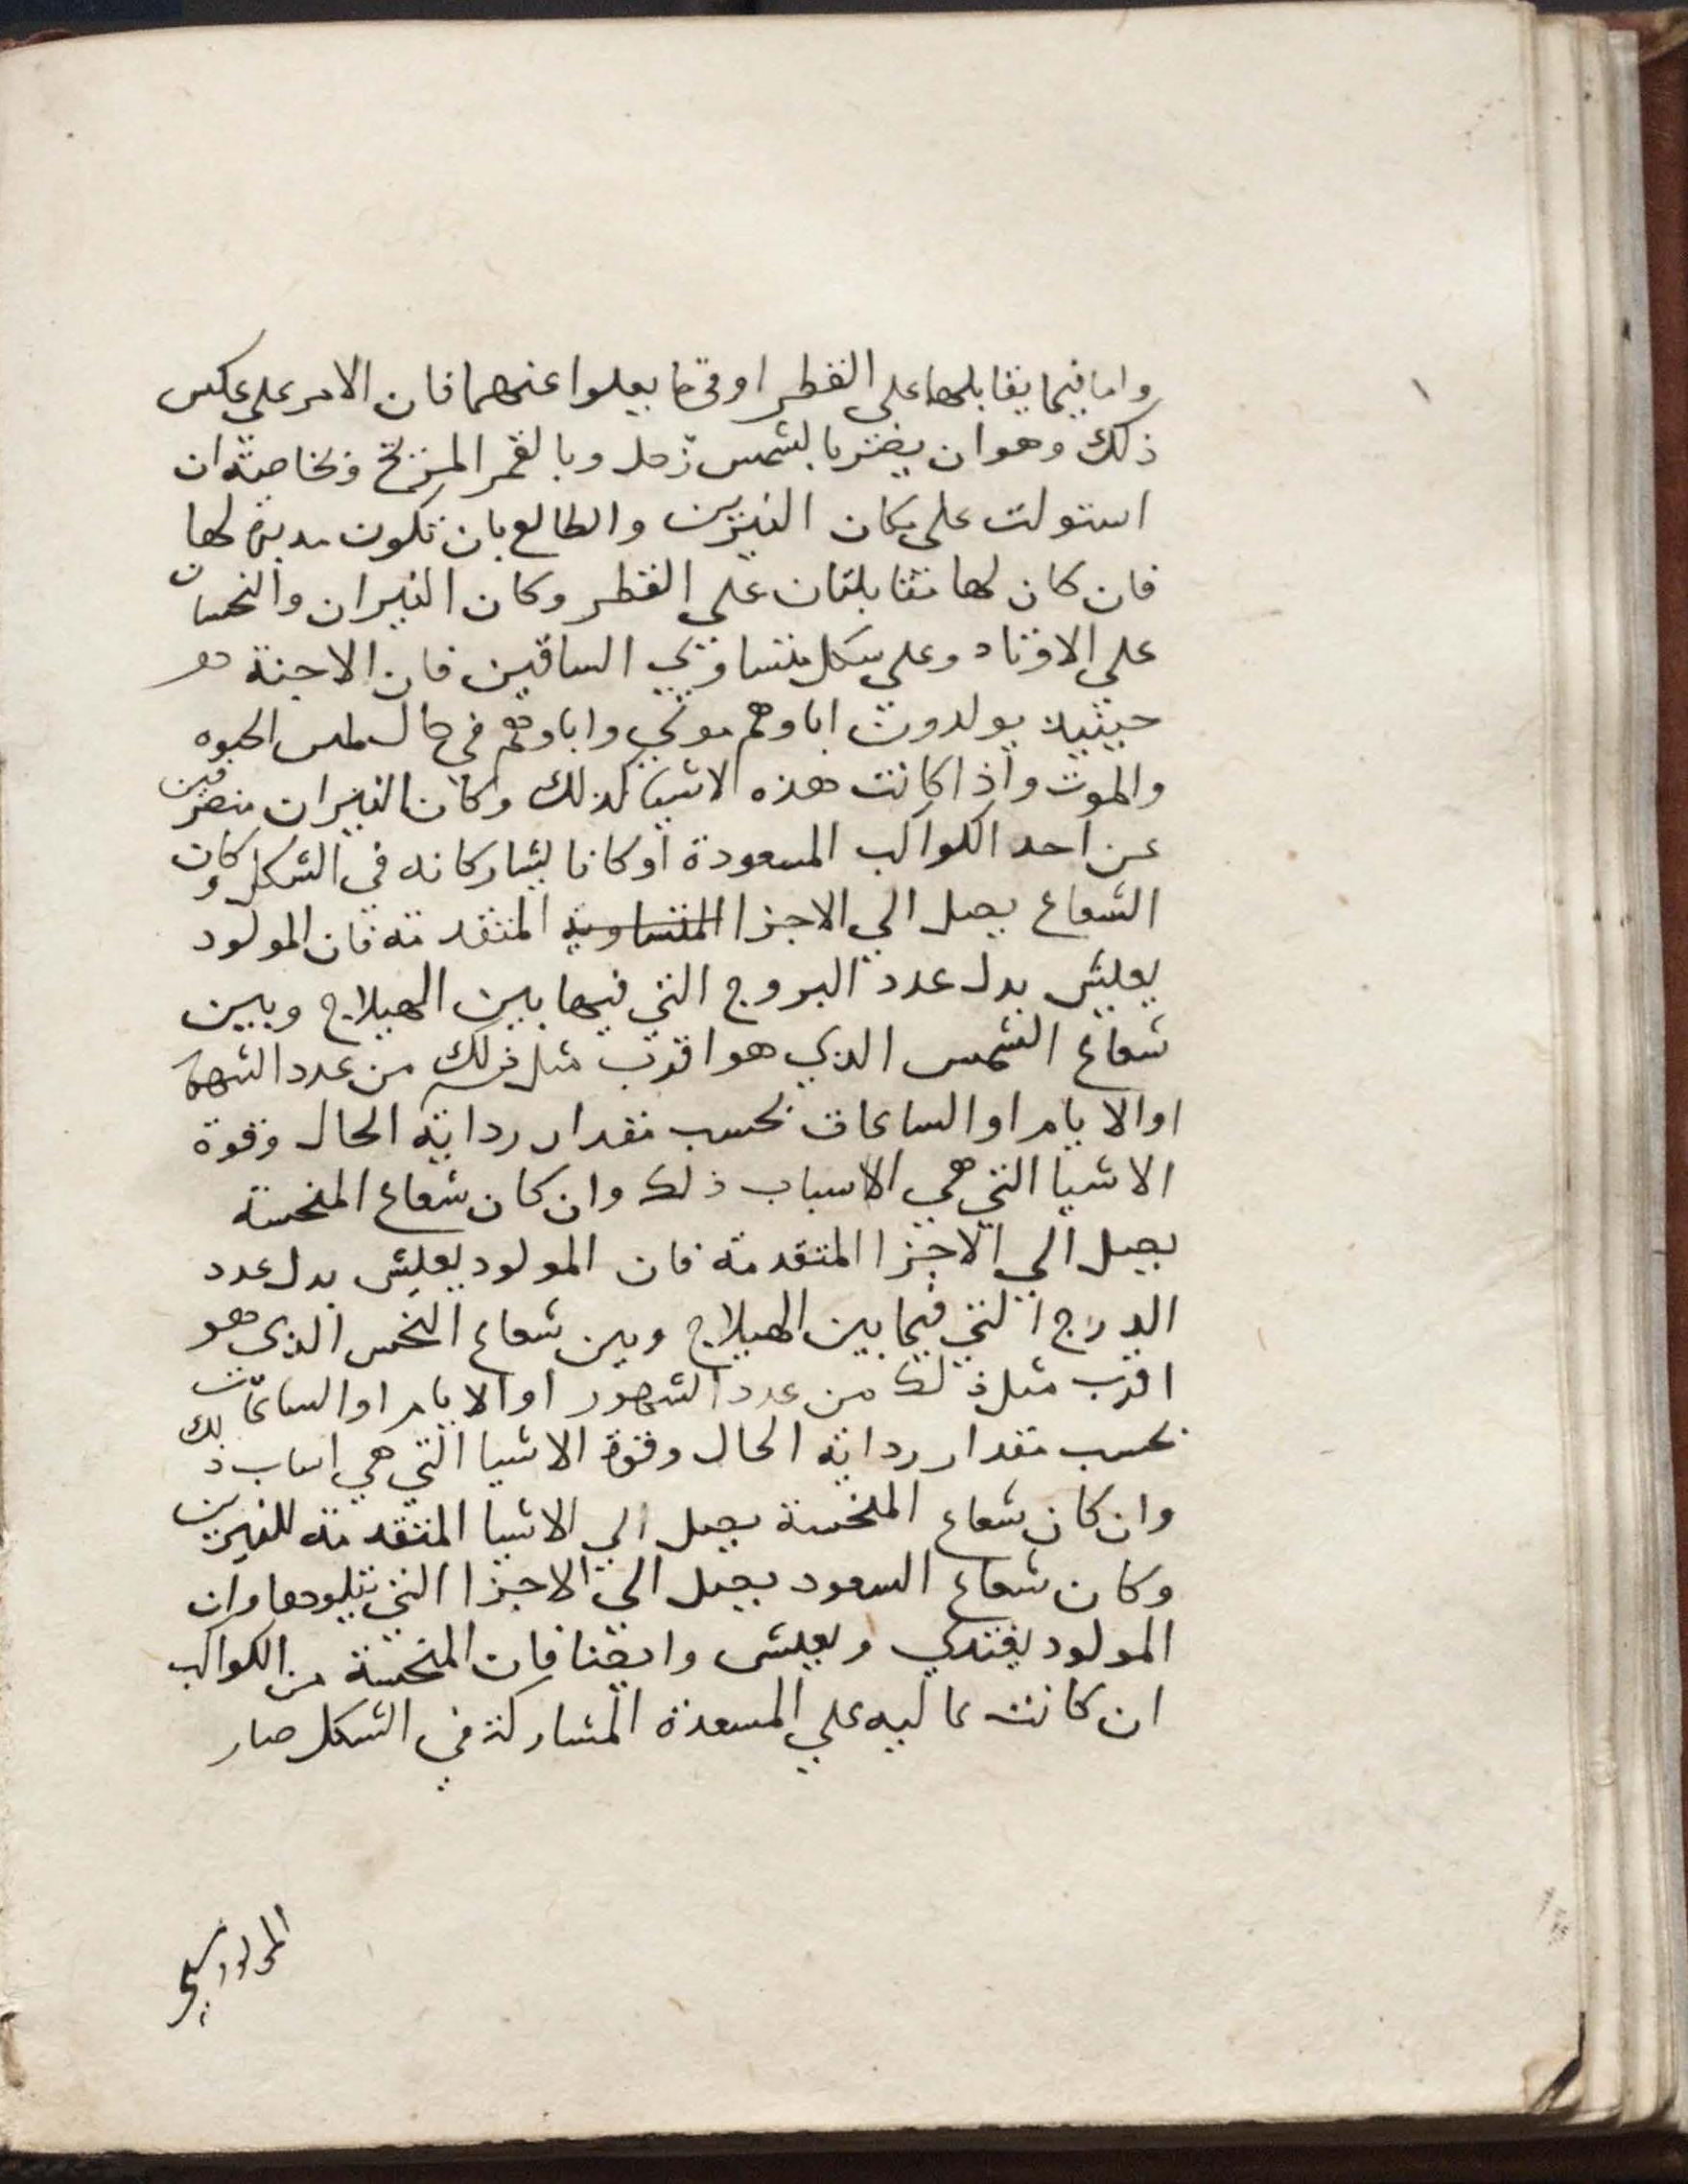 وامافيما يقابلهما على القطر اوفيما يعلوا عنهما فان الامر على عكس
ذلك وهو ان يضر بالشمس زحل وبالقمر المريخ وبخاصة ان
استولت على مكان النيرين والطالع بان تكون مدبرة لها
فان كان لها متقابلتان على القطر وكان النيران والنحسان
على الاوتاد وعلى شكل متساوي الساقين فان الاجنة
حينيذ يولدون اباوهم موتي واباوهم في حال الحيوه
والموت واذا كانت هذه الاشيا كذلك وكان النيران منصرفين
عن احد الكواكب المسعودة او كانا يشاركانه في الشكل وكان
الشعاع يصل الي الاجزا المتساوية المتقدمة فان المولود
يعيش بدل عدد البروج التي فيها بين الهيلاج وبين
شعاع الشمس الذي هو اقرب مثل ذلك من عدد الشهور
اوالايام او الساعات بحسب مقدار رداية الحال وقوة
الاشيا التي هي الاسباب ذلك وان كان شعاع المنحسة
يصل الي الاجزا المتقدمة فان المولود يعيش بدل عدد
الدرج التي فيما بين الهيلاج وبين شعاع النحس الذي هو
اقرب مثل ذلك من عدد الشهور او الايام او الساعات
بحسب مقدار رداية الحال وقوة الاشيا التي هي اسباب ذلك
وان كان شعاع المنحسة يصل الي الاشيا المتقدمة للنيرين
وكان شعاع السعود يصل الي الاجزا التي تتلوها وان
المولود يغتدي ويعيش وايضا فان المنحسة من الكواكب
ان كانت عاليه علي المسعدة المشاركة في الشكل صار
المولود
١